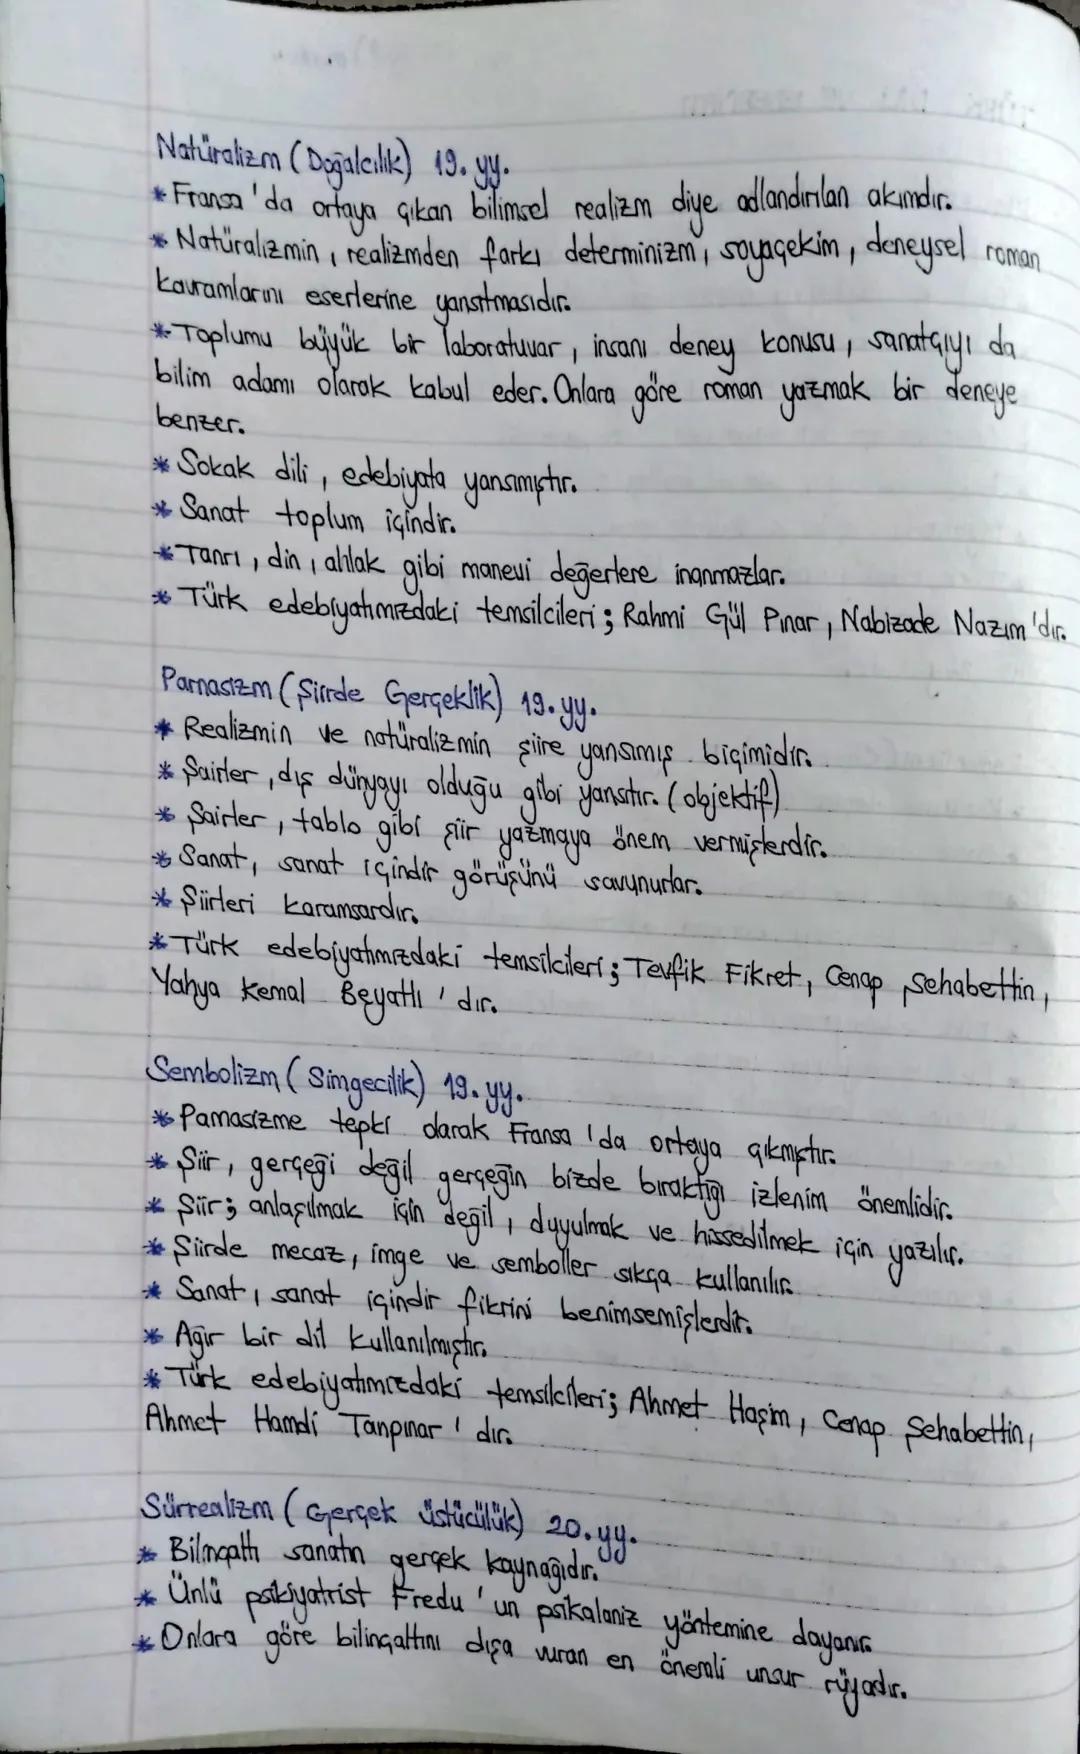 Natüralizm (Doğalcılık) 19. yy.
* Fransa'da ortaya çıkan bilimsel realizm diye adlandırılan akımdır.
* Natüralizmin, realizmden farkı determinizm, soyaçekim, deneysel roman
kavramlarını eserlerine yansıtmasıdır.
* Toplumu büyük bir laboratuvar, insanı deney konusu, sanatçıyı da
bilim adamı olarak kabul eder. Onlara göre roman yazmak bir deneye
benzer.
* Sokak dili, edebiyata yansımıştır.
* Sanat toplum içindir.
* Tanrı, din, ahlak gibi manevi değerlere inanmazlar.
* Türk edebiyatımızdaki temsilcileri; Rahmi Gül Pınar, Nabizade Nazım'dır.
Parnasizm (Şiirde Gerçeklik) 19. yy.
* Realizmin ve natüralizmin şiire yansımış biçimidir.
* Şairler, dış dünyayı olduğu gibi yansıtır. (objektif)
* Şairler, tablo gibi şiir yazmaya önem vermişlerdir.
* Sanat, sanat içindir görüşünü savunurlar.
* Şiirleri karamsardır.
* Türk edebiyatımızdaki temsilcileri; Tevfik Fikret, Cenap Şehabettin,
Yahya Kemal Beyatlı'dır.
Sembolizm (Simgecilik) 19. yy.
* Parnasizme tepki olarak Fransa'da ortaya çıkmıştır.
* Şiir, gerçeği değil gerçeğin bizde bıraktığı izlenim önemlidir.
* Şiir; anlaşılmak için değil, duyulmak ve hissedilmek için yazılır.
* Şiirde mecaz, imge ve semboller sıkça kullanılır.
* Sanat, sanat içindir fikrini benimsemişlerdir.
* Ağır bir dil kullanılmıştır.
* Türk edebiyatımızdaki temsilcileri; Ahmet Haşim, Cenap Şehabettin,
Ahmet Hamdi Tanpınar'dır.
Sürrealizm (Gerçek üstücülük) 20. yy.
* Bilinçaltı sanatın gerçek kaynağıdır.
* Ünlü psikiyatrist Fredu'un psikalaniz yöntemine dayanır.
* Onlara göre bilinçaltını dışa vuran en önemli unsur rüyadır.